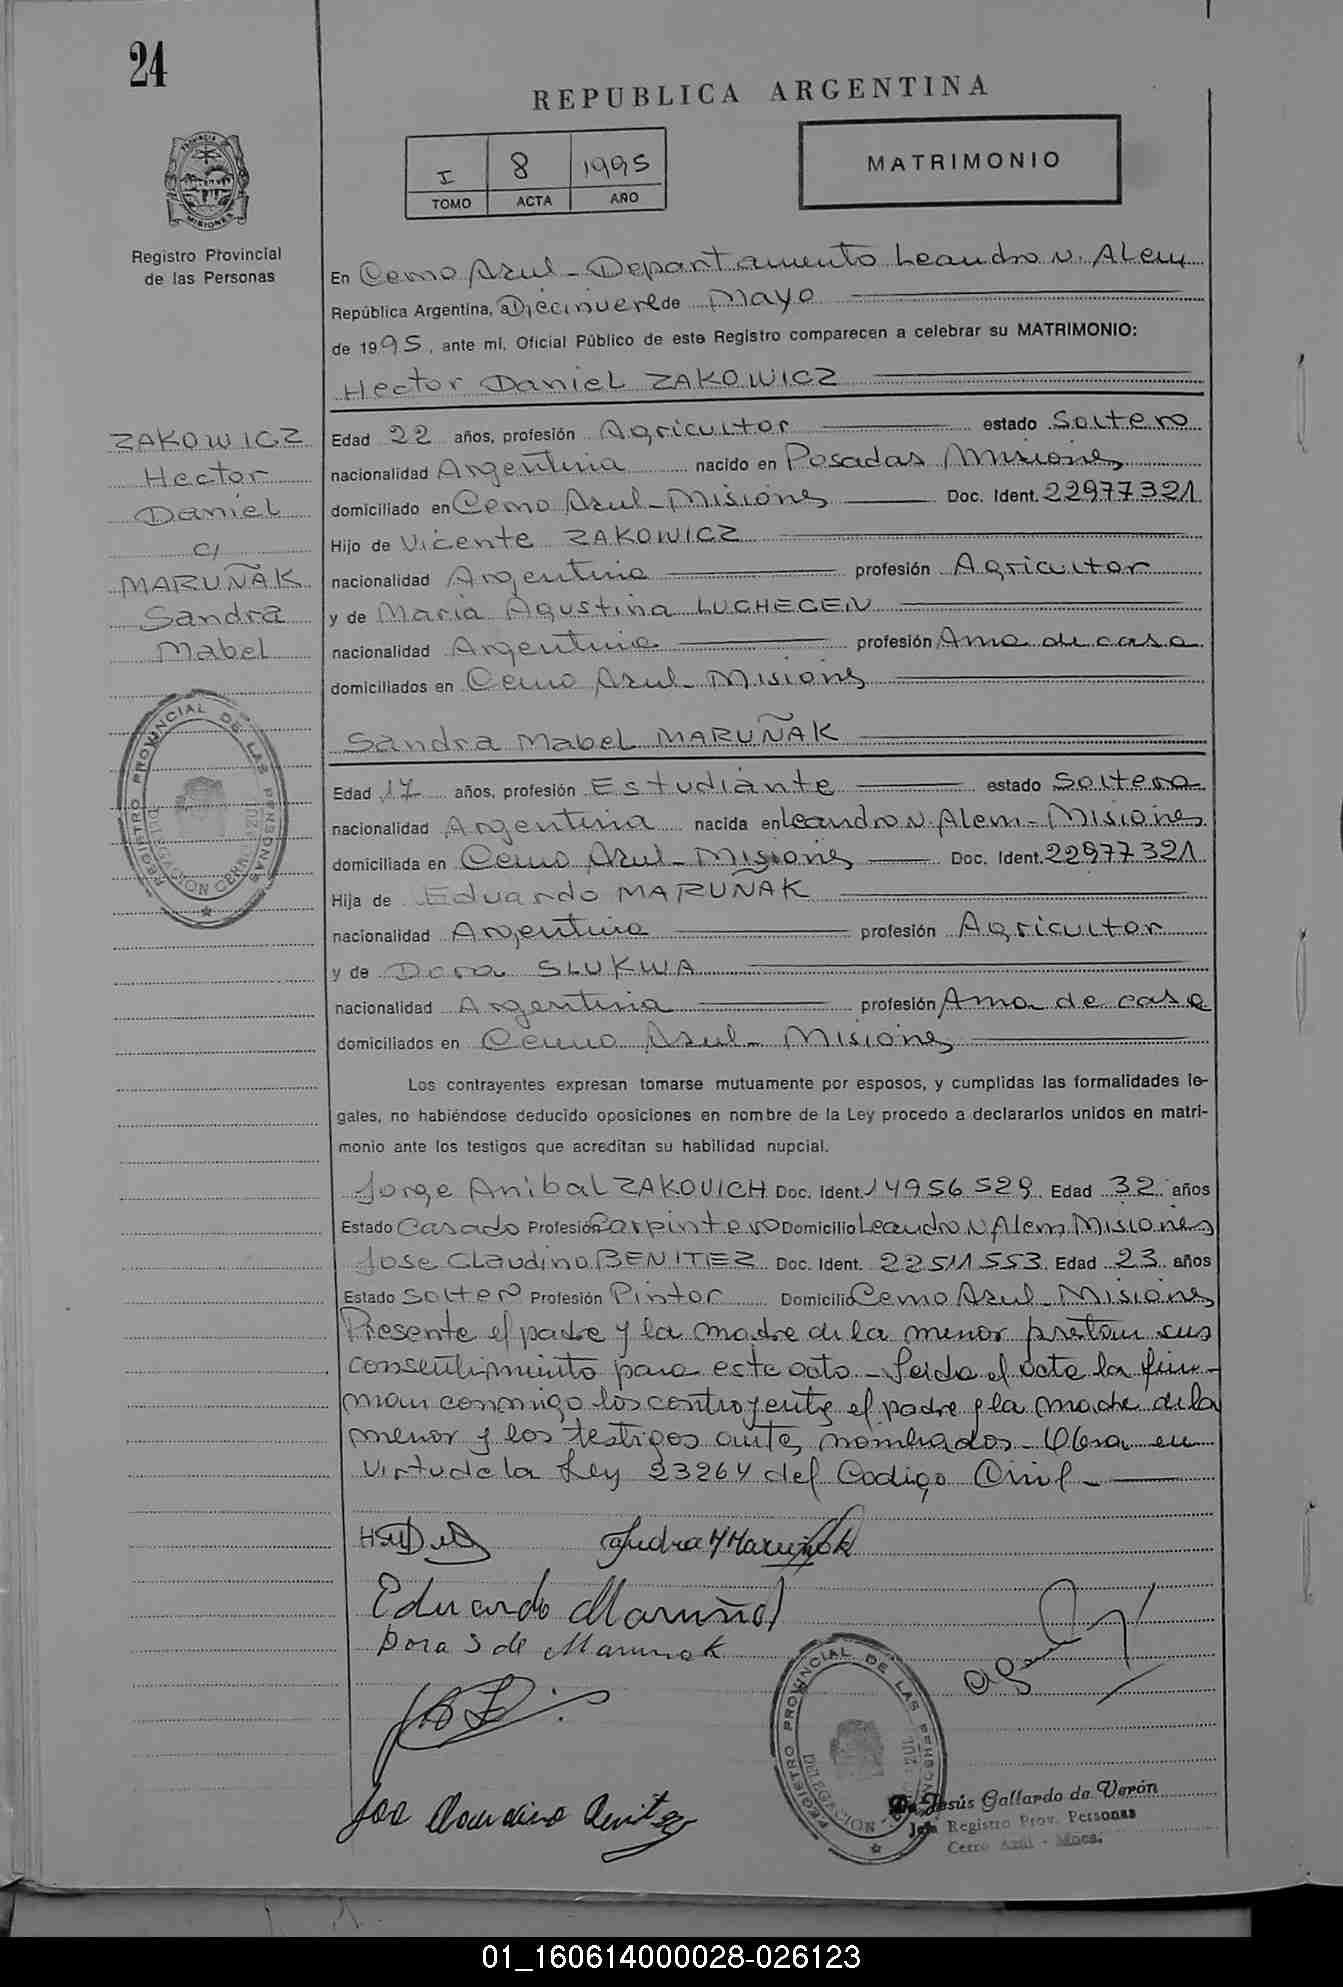 24
REPUBLICA ARGENTINA
I 8 1995
TOMO ACTA AÑO
MATRIMONIO
PROVINCIA DE MISIONES
Registro Provincial
de las Personas
En Cerro Azul - Departamento Leandro N. Alem
República Argentina, a Diecinueve de Mayo
de 1995, ante mí, Oficial Público de este Registro comparecen a celebrar su MATRIMONIO:
Hector Daniel ZAKOWICZ
ZAKOWICZ
Hector
Daniel
c/
MARUÑAK
Sandra
Mabel
Edad 22 años, profesión Agricultor estado Soltero
nacionalidad Argentina nacido en Posadas Misiones
domiciliado en Cerro Azul - Misiones Doc. Ident. 22977321
Hijo de Vicente ZAKOWICZ
nacionalidad Argentina profesión Agricultor
y de Maria Agustina LUCHECEN
nacionalidad Argentina profesión Ama de casa
domiciliados en Cerro Azul - Misiones
Sandra Mabel MARUÑAK
REGISTRO PROVINCIAL DE LAS PERSONAS
DELEGACION CERRO AZUL
Edad 17 años, profesión Estudiante estado Soltera
nacionalidad Argentina nacida en Leandro N. Alem - Misiones
domiciliada en Cerro Azul - Misiones Doc. Ident. 22977321
Hija de Eduardo MARUÑAK
nacionalidad Argentina profesión Agricultor
y de Dora SLUKWA
nacionalidad Argentina profesión Ama de casa
domiciliados en Cerro Azul - Misiones
Los contrayentes expresan tomarse mutuamente por esposos, y cumplidas las formalidades le-
gales, no habiéndose deducido oposiciones en nombre de la Ley procedo a declararlos unidos en matri-
monio ante los testigos que acreditan su habilidad nupcial.
Jorge Anibal ZAKOVICH Doc. Ident. 14956529 Edad 32 años
Estado Casado Profesión Carpintero Domicilio Leandro N Alem Misiones
Jose Claudino BENITEZ Doc. Ident. 22511553 Edad 23 años
Estado Soltero Profesión Pintor Domicilio Cerro Azul - Misiones
Presente el padre y la madre de la menor prestan sus
consentimiento para este acto - Leida el acta la fir-
man conmigo los contrayentes el padre y la madre de la
menor y los testigos antes nombrados - Obra en
Virtud de la Ley 23264 del Codigo Civil -
Sandra M Maruñak
Eduardo Maruñak
Dora S de Marunak
Jose Claudino Benitez
REGISTRO PROVINCIAL DE LAS PERSONAS
DELEGACION AZUL
De Jesús Gallardo de Verón
Jefa Registro Prov. Personas
Cerro Azul - Mnes.
01_160614000028-026123